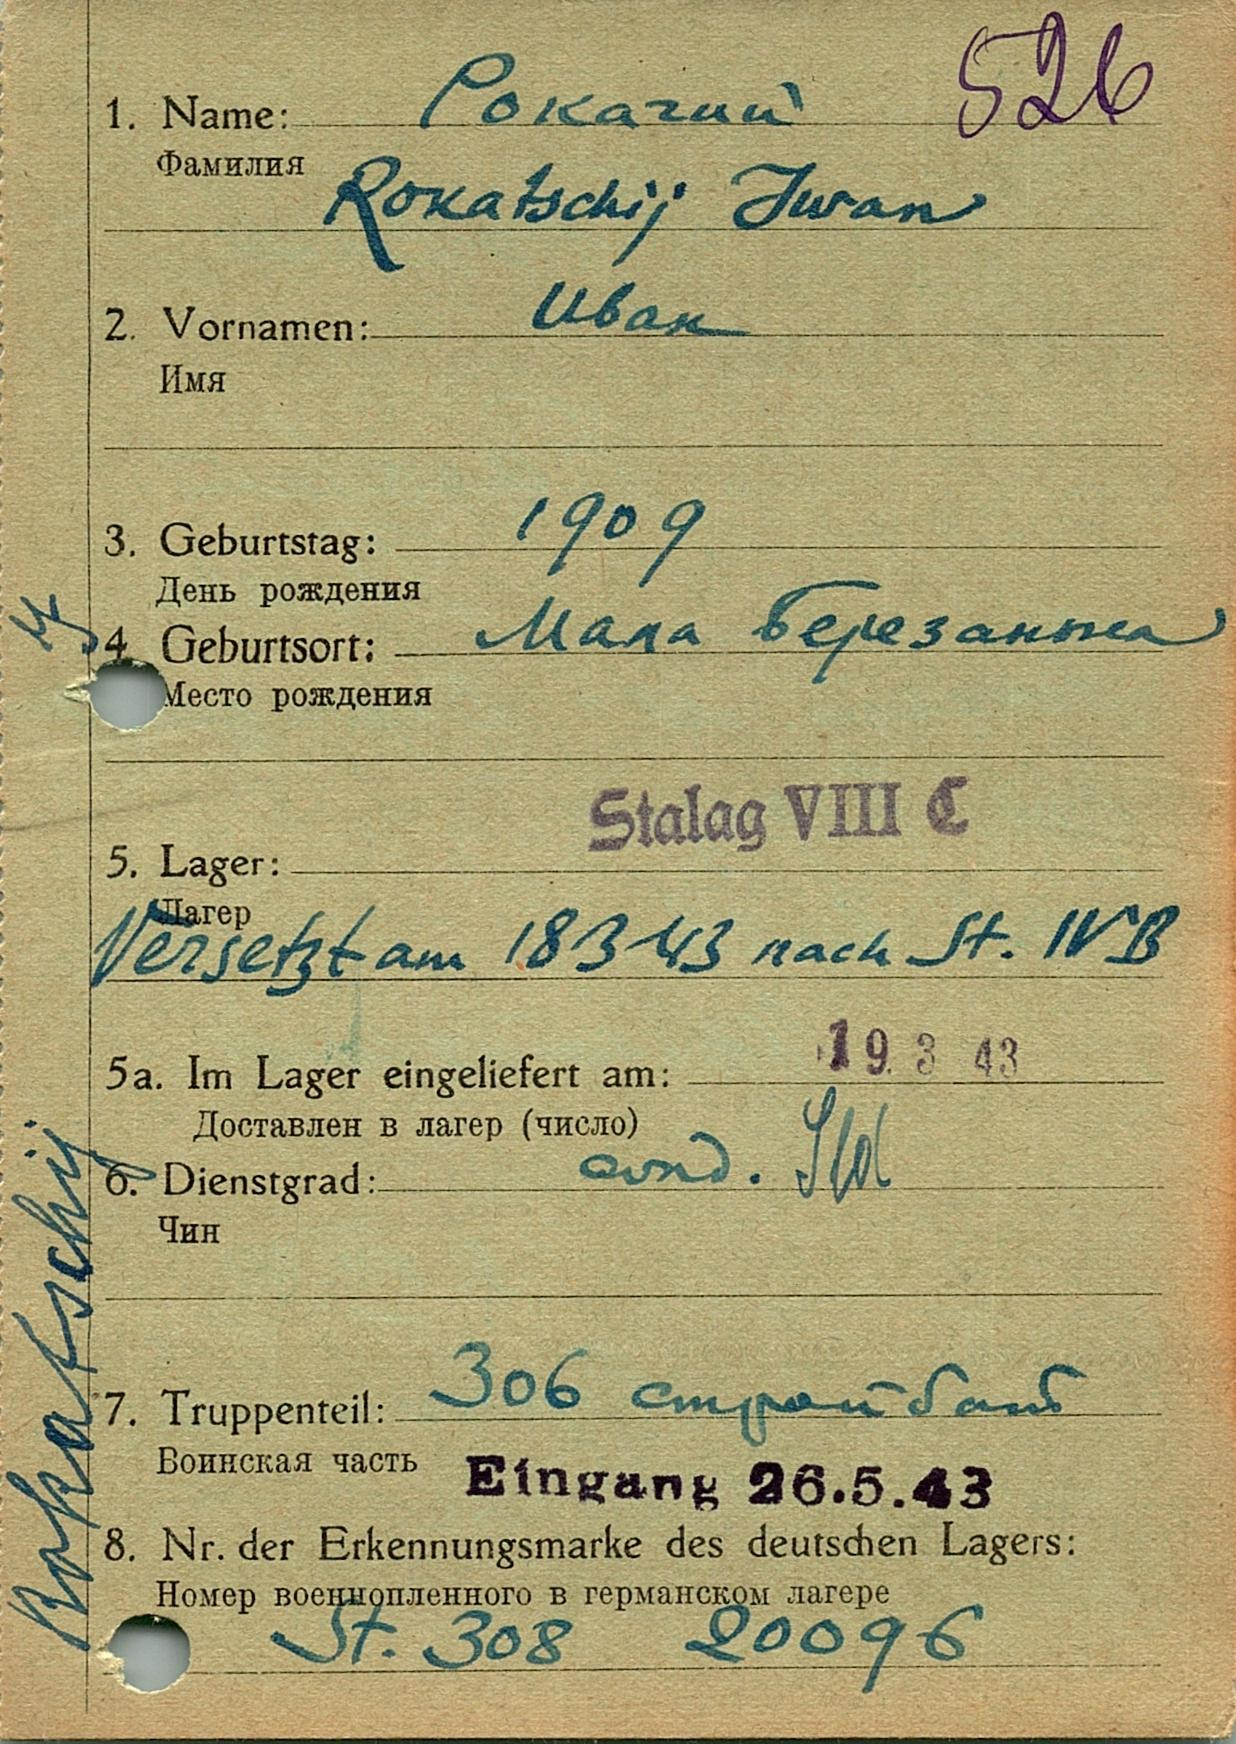 526
1. Name: Рокачий
Фамилия
Rokatschij Iwan
2. Vornamen: Иван
Имя
1909
3. Geburtstag:
День рождения
4 Geburtsort: Мала Березанка
Место рождения
Stalag VIII C
5. Lager:
Лагер
Versetzt am 18 3 43 nach St. IV B
5a. Im Lager eingeliefert am: 19. 3 43
Доставлен в лагер (число)
6. Dienstgrad: Sld
Чин
7. Truppenteil: 306 строй бат
Воинская часть
Eingang 26.5.43
8. Nr. der Erkennungsmarke des deutschen Lagers:
Номер военнопленного в германском лагере
St. 308 20096
Rokatschij